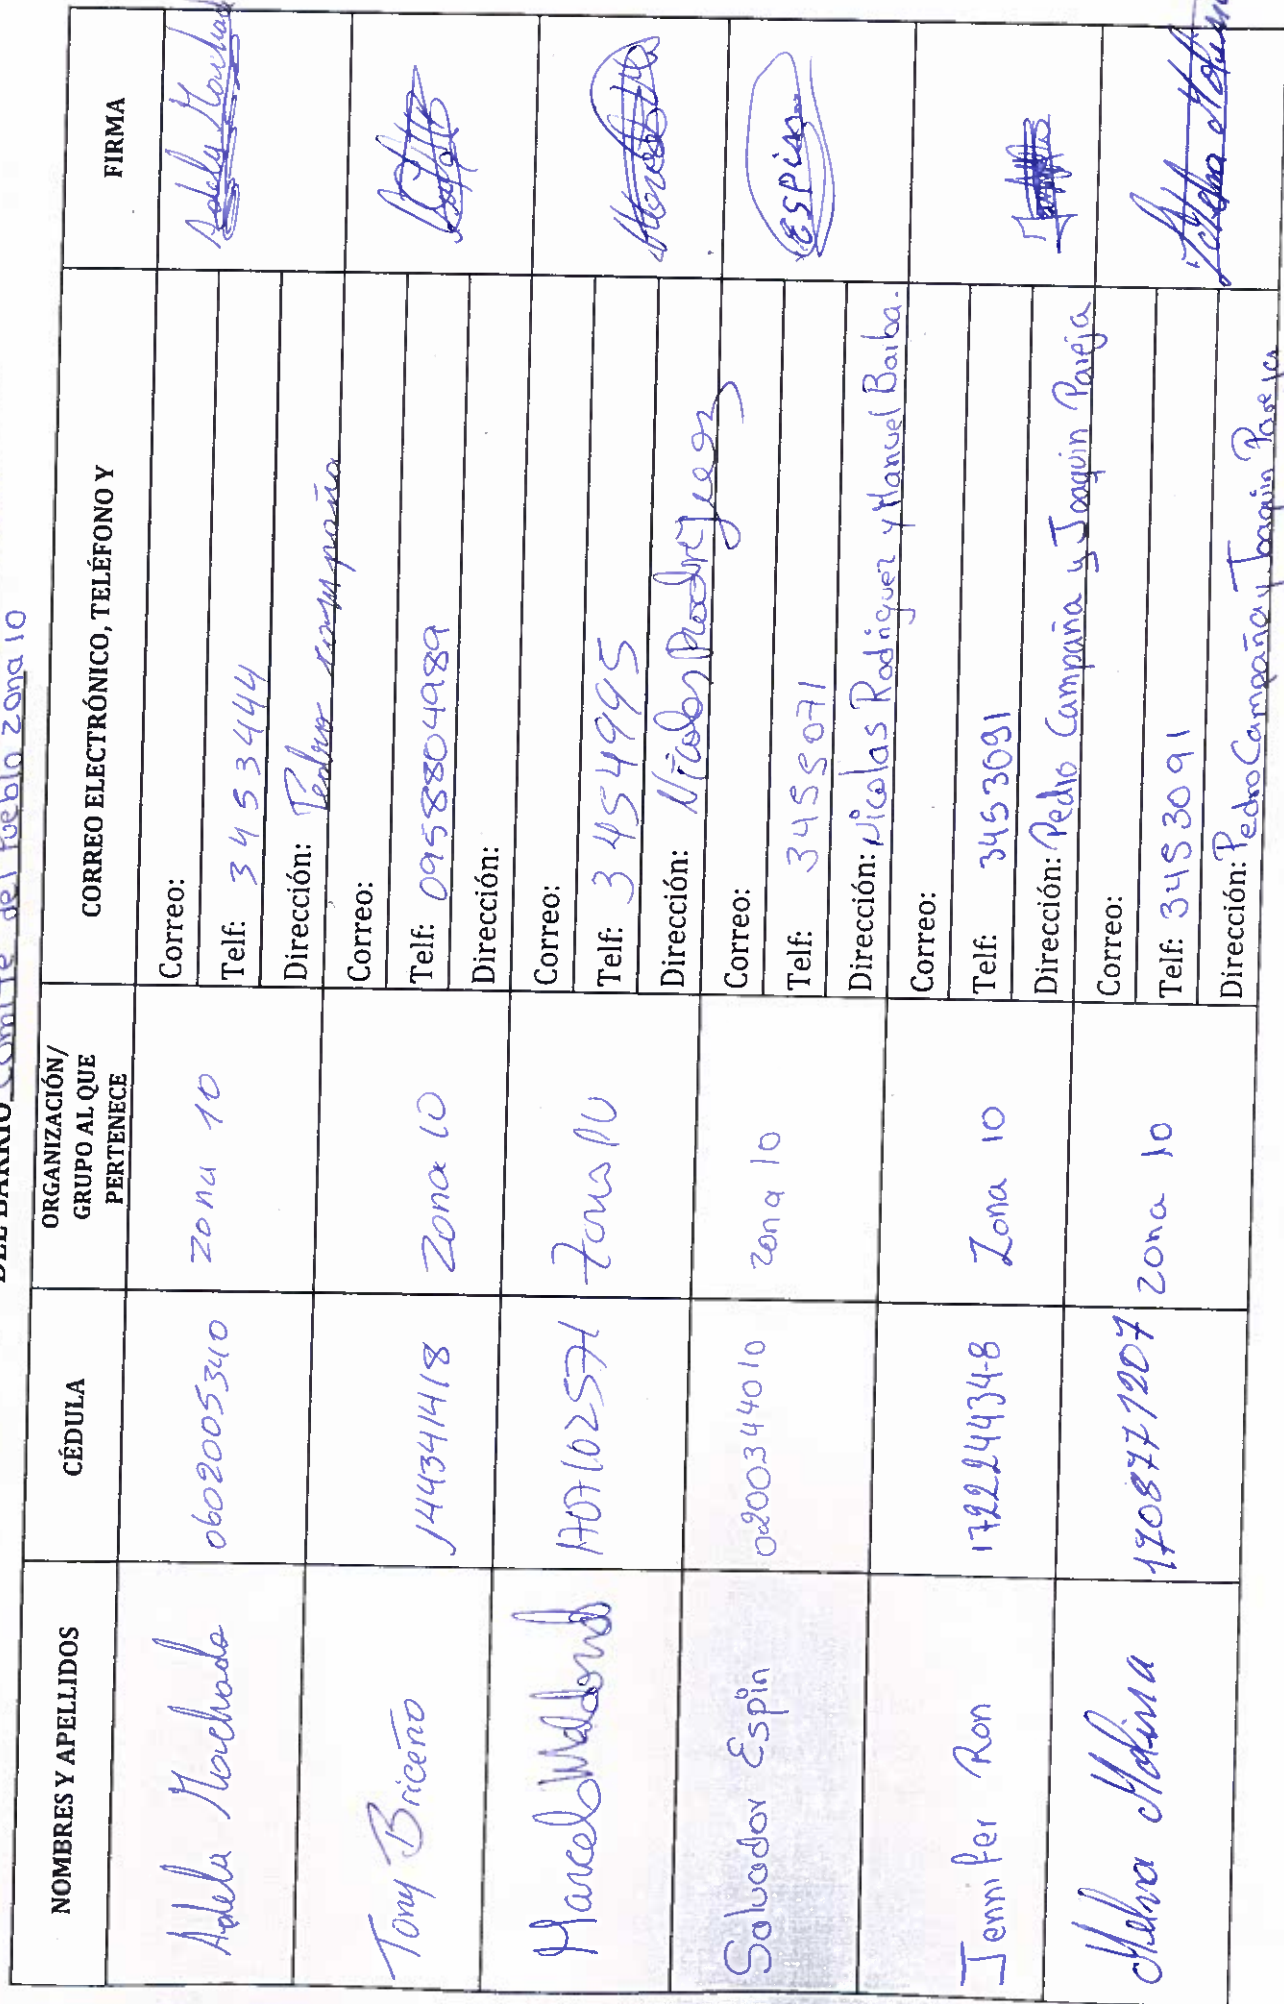 DEL BARRIO Comite del Pueblo zona 10
NOMBRES Y APELLIDOS
CÉDULA
ORGANIZACIÓN/
GRUPO AL QUE
PERTENECE
CORREO ELECTRÓNICO, TELÉFONO Y
FIRMA
Adela Machado
0602005340
zona 10
Correo:
Telf: 3453444
Dirección: Pedro campaña
Adela Machado
Tony Briceño
144341418
Zona 10
Correo:
Telf: 0958804989
Dirección:
Marcelo Maldonado
1707102571
Zona 10
Correo:
Telf: 3454995
Dirección: Nicolas Rodriguez
Salvador Espin
0200344010
zona 10
Correo:
Telf: 3455071
Dirección: Nicolas Rodriguez y Manuel Barba.
ESPin
Jennifer Ron
172224434-8
Zona 10
Correo:
Telf: 3453091
Dirección: Pedro Campaña y Joaquin Pareja
Melva Molina
1708771207
zona 10
Correo:
Telf: 3453091
Dirección: Pedro Campaña y Joaquin Pareja
Melva Molina